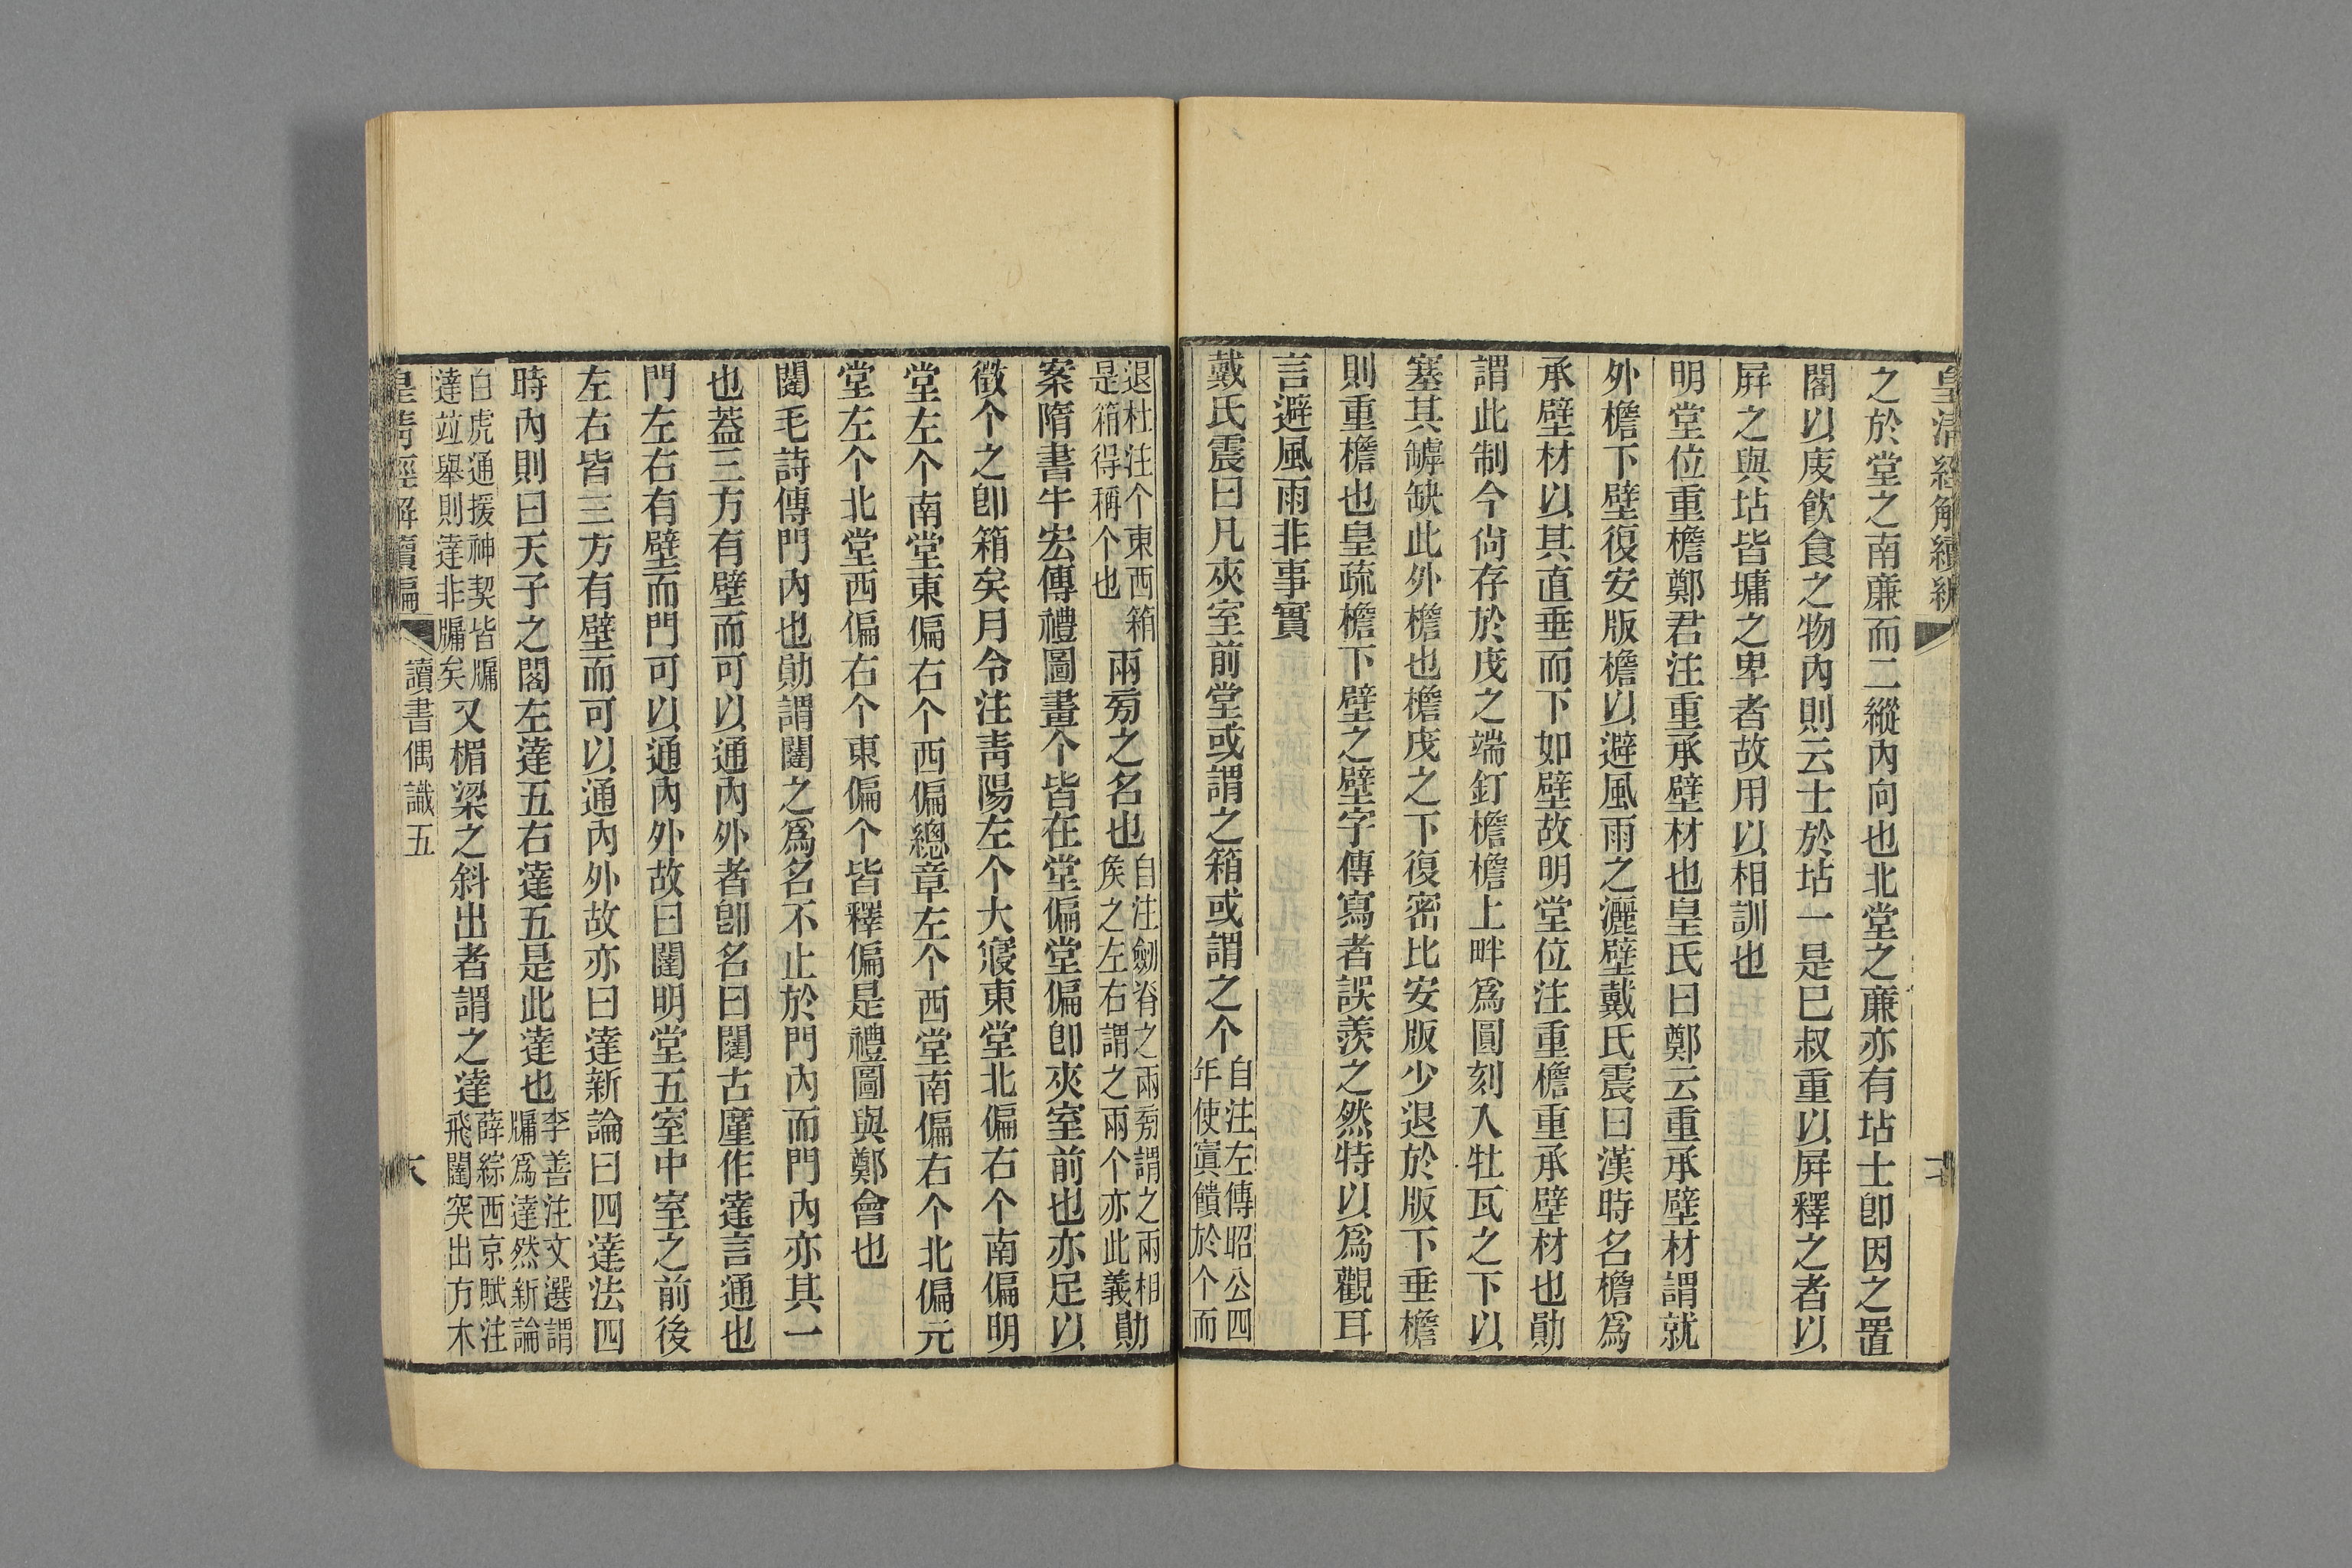 皇清經解續編
之於堂之南廉而二縱內向也北堂之廉亦有坫士卽因之置
閣以庋飲食之物內則云士於坫一是巳叔重以屛釋之者以
屛之與坫皆墉之卑者故用以相訓也
明堂位重檐鄭君注重承壁材也皇氏曰鄭云重承壁材謂就
外檐下壁復安版檐以避風雨之灑壁戴氏震曰漢時名檐爲
承壁材以其直垂而下如壁故明堂位注重檐重承壁材也勛
謂此制今尙存於庋之端釘檐檐上畔爲圓刻入牡瓦之下以
塞其罅缺此外檐也檐庋之下復密比安版少退於版下垂檐
則重檐也皇疏檐下壁之壁字傳寫者誤羨之然特以爲觀耳
言避風雨非事實
戴氏震曰凡夾室前堂或謂之箱或謂之个自注左傳昭公四
年使寘饋於个而
退杜注个東西箱
是箱得稱个也兩㫄之名也自注劒脊之兩㫄謂之兩相
矦之左右謂之兩个亦此義勛
案隋書牛宏傳禮圖畫个皆在堂偏堂偏卽夾室前也亦足以
徵个之卽箱矣月令注靑陽左个大寢東堂北偏右个南偏明
堂左个南堂東偏右个西偏總章左个西堂南偏右个北偏元
堂左个北堂西偏右个東偏个皆釋偏是禮圖與鄭會也
闥毛詩傳門內也勛謂闥之爲名不止於門內而門內亦其一
也蓋三方有壁而可以通內外者卽名曰闥古廑作達言通也
門左右有壁而門可以通內外故曰闥明堂五室中室之前後
左右皆三方有壁而可以通內外故亦曰達新論曰四達法四
時內則曰天子之閣左達五右達五是此達也李善注文選謂
牖爲達然新論
白虎通援神契皆牖
達竝舉則達非牖矣又楣梁之斜出者謂之達薛綜西京賦注
飛闥突出方木
皇淸經解續編
讀書偶識五